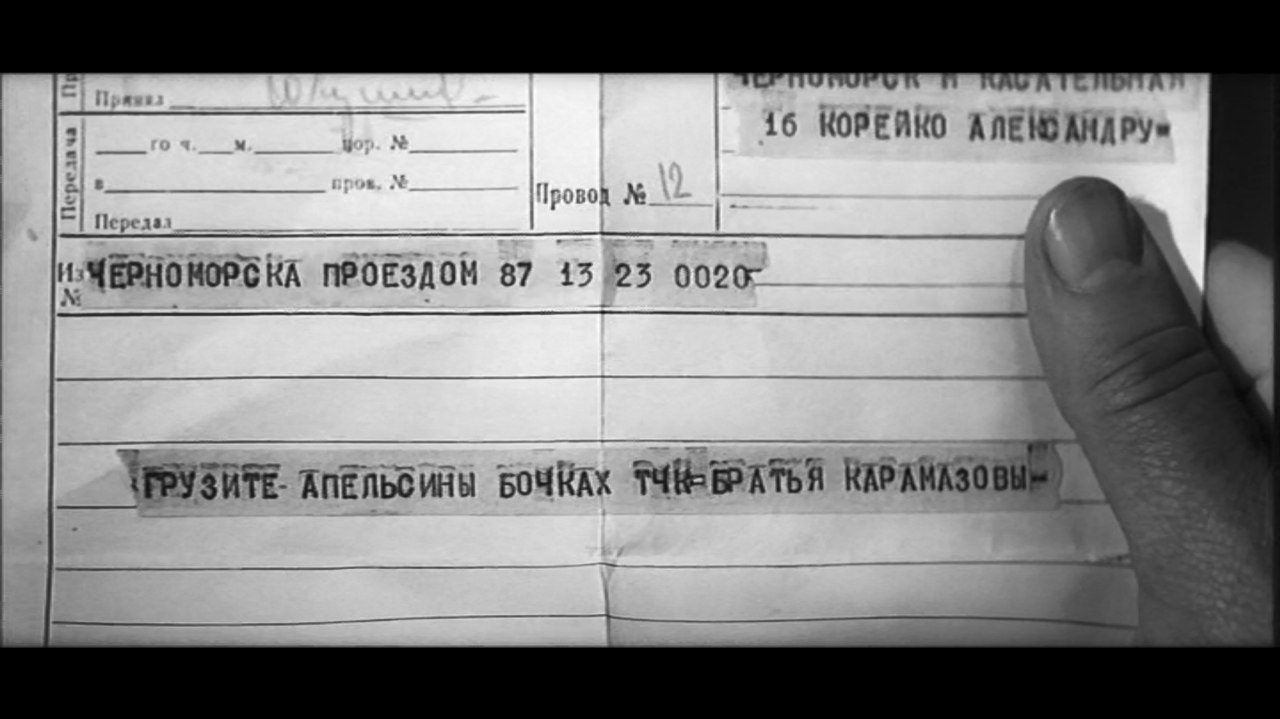 Принял
ЧЕРНОМОРСК М КАСАТЕЛЬНАЯ
16 КОРЕЙКО АЛЕКСАНДРУ=
Передача
го ч. м. пор. №
в пров. №
Провод № 12
Передал
Из ЧЕРНОМОРСКА ПРОЕЗДОМ 87 13 23 0020-
№
ГРУЗИТЕ- АПЕЛЬСИНЫ БОЧКАХ ТЧК=БРАТЬЯ КАРАМАЗОВЫ-